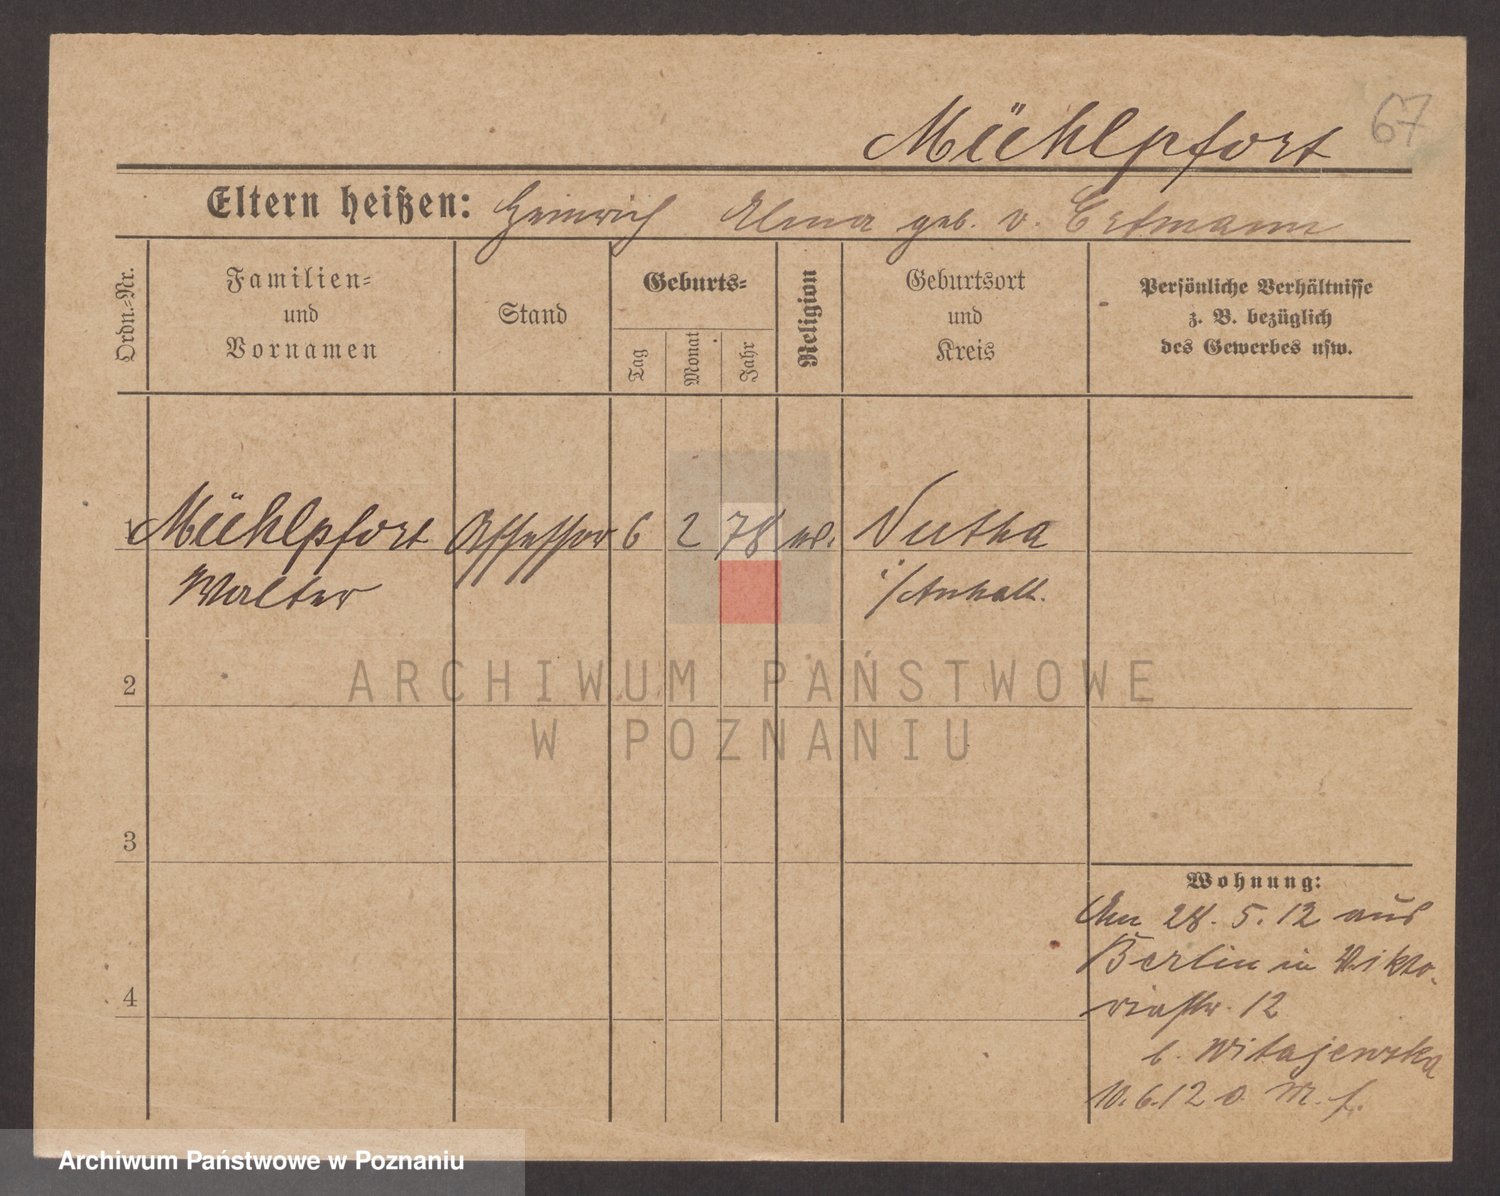 Mühlpfort 67
Eltern heißen: Heinrich Elma geb. v. Ertmann
Ordn.-Nr.
Familien-
und
Vornamen
Stand
Geburts-
Tag
Monat
Jahr
Religion
Geburtsort
und
Kreis
Persönliche Verhältnisse
z. B. bezüglich
des Gewerbes usw.
1 Mühlpfort Assessor 6 2 78 ev. Nutha
Walter i/Anhalt.
2
ARCHIWUM PAŃSTWOWE
W POZNANIU
3
Wohnung:
Am 28. 5. 12 aus
Berlin in Vikto-
riastr. 12
b. Witajewska
4
10. 6. 12 o. M. f.
Archiwum Państwowe w Poznaniu